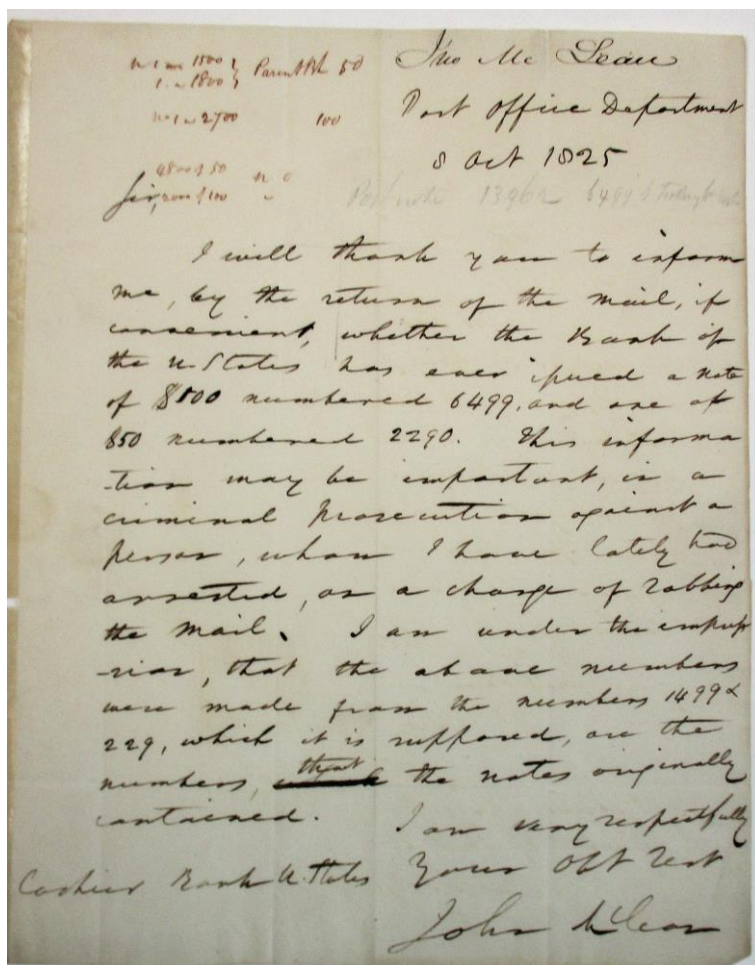 Jno Mc Lean
Post Office Department
8 Oct 1825
Parent Bk 50
100
Sir,
I will thank you to inform
me, by the return of the mail, if
convenient, whether the Bank of
the U. States has ever issued a note
of $500 numbered 6499, and one of
$50 numbered 2290. This informa
-tion may be important, in a
criminal prosecution against a
person, whom I have lately had
arrested, on a charge of robbing
the mail. I am under the impres
-sion, that the above numbers
were made from the numbers 1499 &
229, which it is supposed, are the
numbers, that the notes originally
contained.
I am very respectfully
Your Obt Sert
John McLean
Cashier Bank U. States